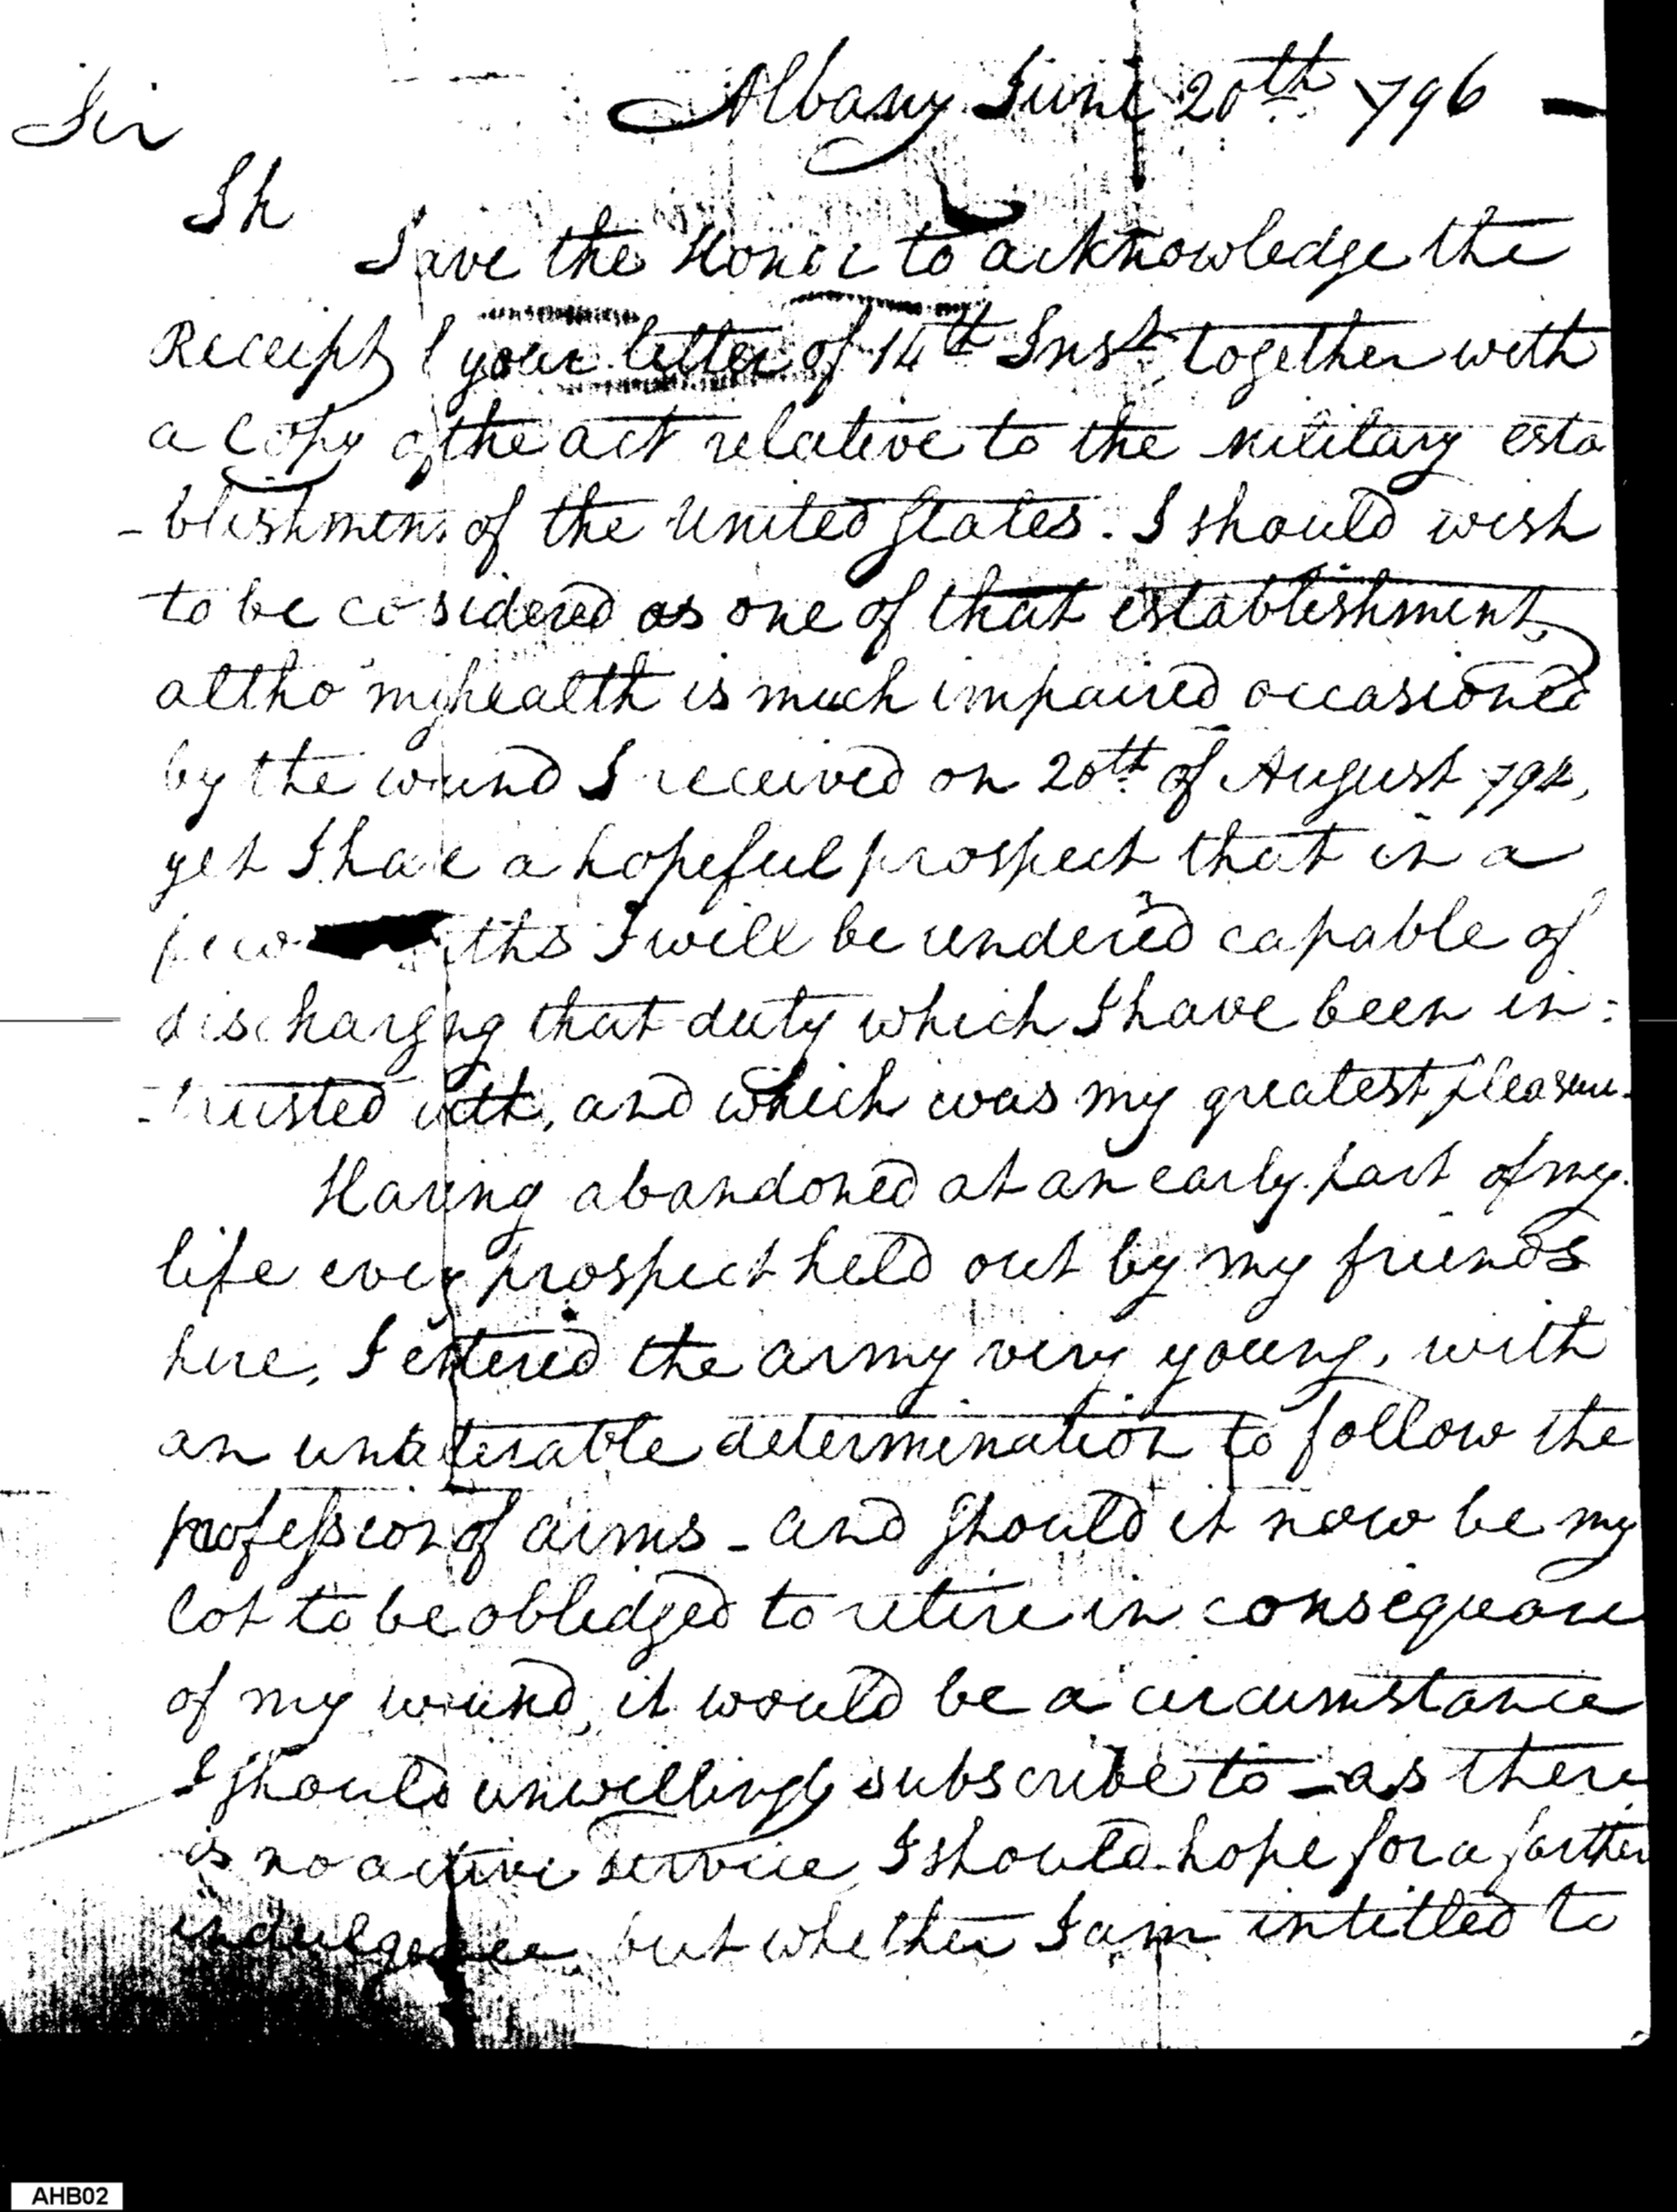 Albany June 20th 796
Sir
I have the Honor to acknowledge the
Receipt of your letter of 14th Inst. together with
a copy of the act relative to the military esta
-blishment of the United States. I should wish
to be considered as one of that establishment,
altho' my health is much impaired occasioned
by the wound I received on 20th of August 794,
yet I have a hopeful prospect that in a
few months I will be rendered capable of
discharging that duty which I have been in:
-trusted with, and which was my greatest pleasure.
Having abandoned at an early part of my
life every prospect held out by my friends
here, I entered the army very young, with
an unalterable determination to follow the
profession of arms - and should it now be my
lot to be obledged to retire in consequence
of my wound, it would be a circumstance
I should unwillingly subscribe to - as there
is no active service, I should hope for a farther
indulgence but whether I am intitled to
AHB02